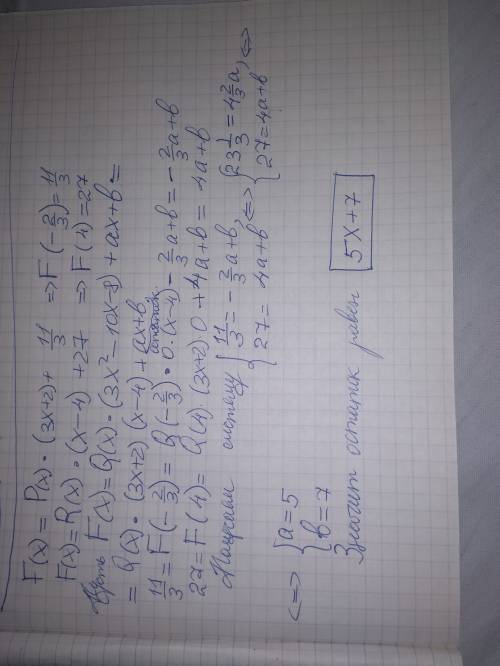 F(x) = P(x)·(3x+2)+ 11/3 ⇒F(-2/3)=11/3
F(x)=R(x)·(x-4)+27 ⇒F(4)=27
Пусть F(x)=Q(x)·(3x²-10x-8)+ax+b=
=Q(x)·(3x+2)(x-4)+ax+b
остаток
11/3=F(-2/3)=Q(-2/3)·0·(x-4)-2/3a+b=-2/3a+b
27=F(4)=Q(4)·(3x+2)·0+4a+b=4a+b
Получаем систему { 11/3=-2/3a+b, 27=4a+b ⇔ { 23 1/3=4 2/3a, 27=4a+b ⇔
⇔ { a=5 b=7
Значит остаток равен 5x+7